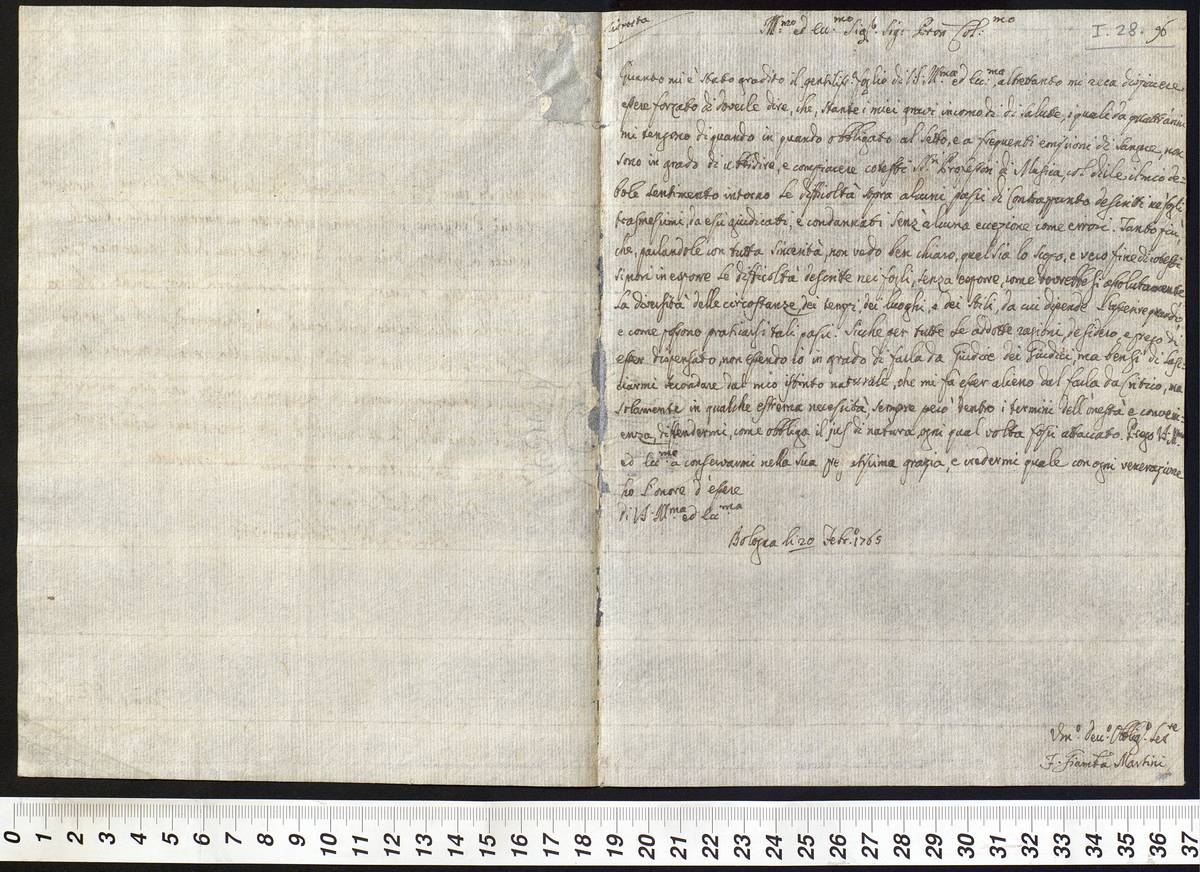 Risposta
Ill.mo ed Ecc.mo Sig.r Sig.r Pron Col.mo
I. 28. 96
Quanto mi è stato gradito il gentiliss.o foglio di V.S. Ill.ma ed Ecc.ma, altretanto mi reca dispiacere
essere forzato di doverle dire, che, stante i miei gravi incomodi di salute, i quali da quatt'anni
mi tengono di quando in quando obbligato al letto, e a frequenti emissioni di Sangue, non
sono in grado di ubbidire, e compiacere cotesti SS.ri Professori di Musica col dirle il mio de-
bole sentimento intorno le difficoltà sopra alcuni passi di Contrappunto descritti ne' fogli
trasmessimi, da essi giudicati, e condannati senz'alcuna eccezione come errori. Tanto più,
che, parlandole con tutta sincerità, non vedo ben chiaro, qual sia lo scopo, e vero fine di cotesti
Signori in esporre le difficoltà descritte nei fogli, senza esporre, come dovrebbesi assolutamente
la diversità delle circostanze, dei tempi, dei luoghi, e dei stili, da cui dipende
e come possono praticarsi tali passi. Sicche per tutte le addotte ragioni desidero, e prego di
esser dispensato, non essendo io in grado di farla da Giudice dei Giudici, ma bensì di las-
ciarmi secondare dal mio istinto naturale, che mi fa esser alieno dal farla da Critico, ma
solamente in qualche estrema necessità sempre però dentro i termini dell'onestà e conveni-
enza, diffendermi, come obbliga il jus di natura, ogni qual volta fossi attaccato. Prego V.S. Ill.ma
ed Ecc.ma a conservarmi nella sua grazia, e credermi quale con ogni venerazione
ho l'onore d'essere
di V.S. Ill.ma ed Ecc.ma
Bologna li 20 Febr.o 1765
Um.o Dev.o Obblig.o Ser.re
F. Giamb.a Martini